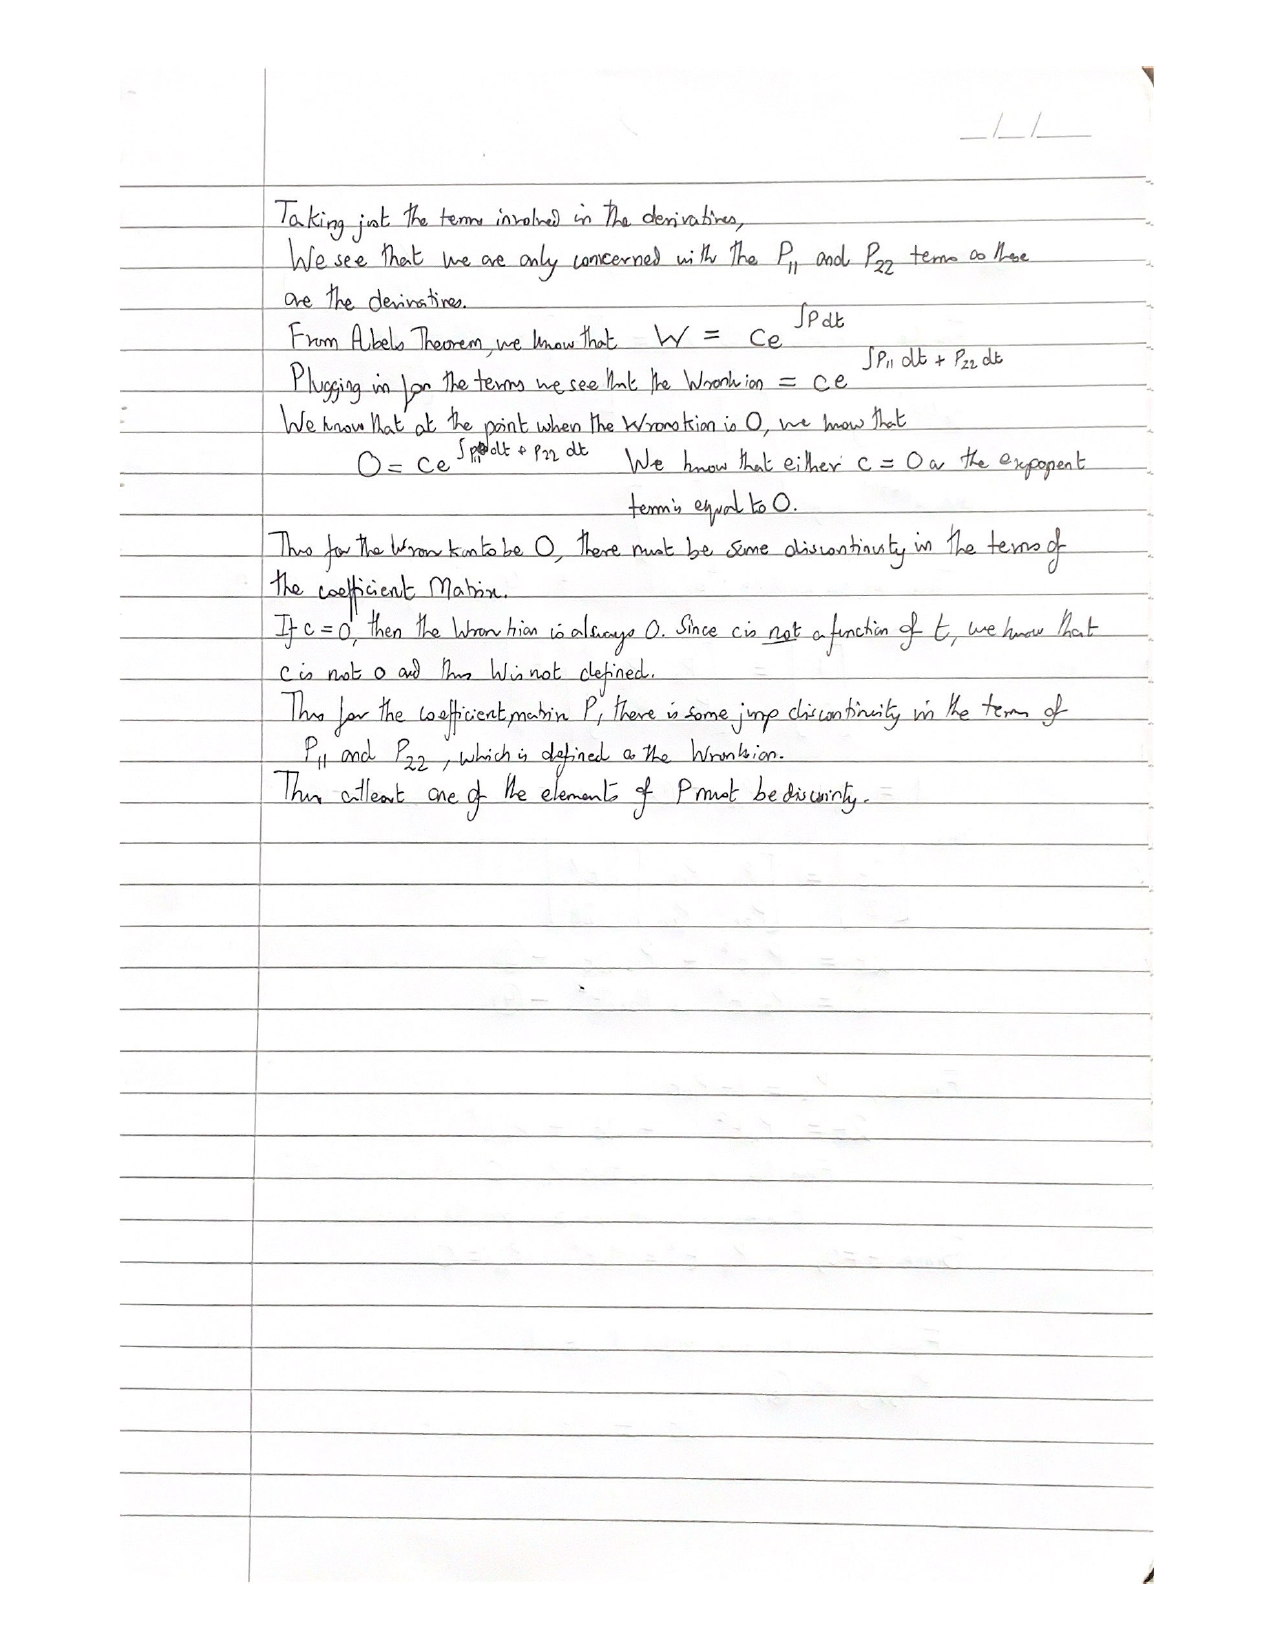 _/_/__
Taking just the terms involved in the derivatives,
We see that we are only concerned with the P₁₁ and P₂₂ terms as these
are the derivatives.
From Abels Theorem, we know that W = ce^∫P dt
Plugging in for the terms we see that the Wronskian = ce^∫P₁₁ dt + P₂₂ dt
We know that at the point when the Wronskian is 0, we know that
0 = ce^∫P₁₁ dt + P₂₂ dt We know that either c = 0 or the exponent
term is equal to 0.
Thus for the Wronskian to be 0, there must be some discontinuity in the terms of
the coefficient Matrix.
If c = 0, then the Wronskian is always 0. Since c is not a function of t, we know that
c is not 0 and thus W is not defined.
Thus for the coefficient matrix P, there is some jump discontinuity in the term of
P₁₁ and P₂₂, which is defined as the Wronksion.
Thus atleast one of the elements of P must be